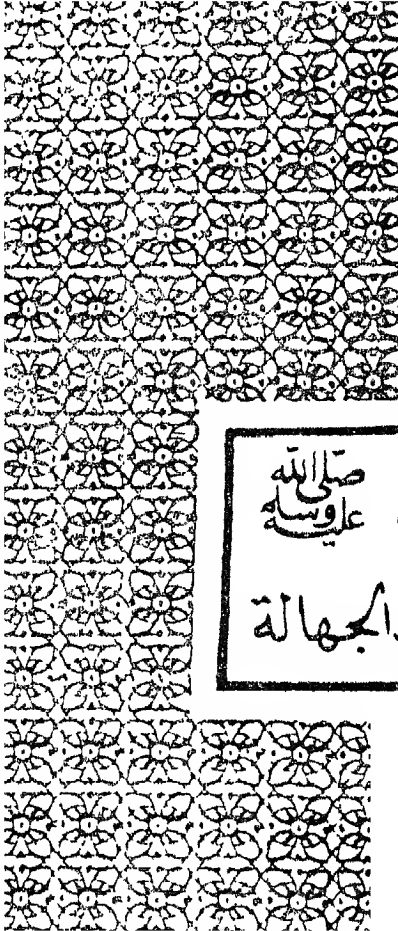 صلى الله عليه وسلم
الجهالة